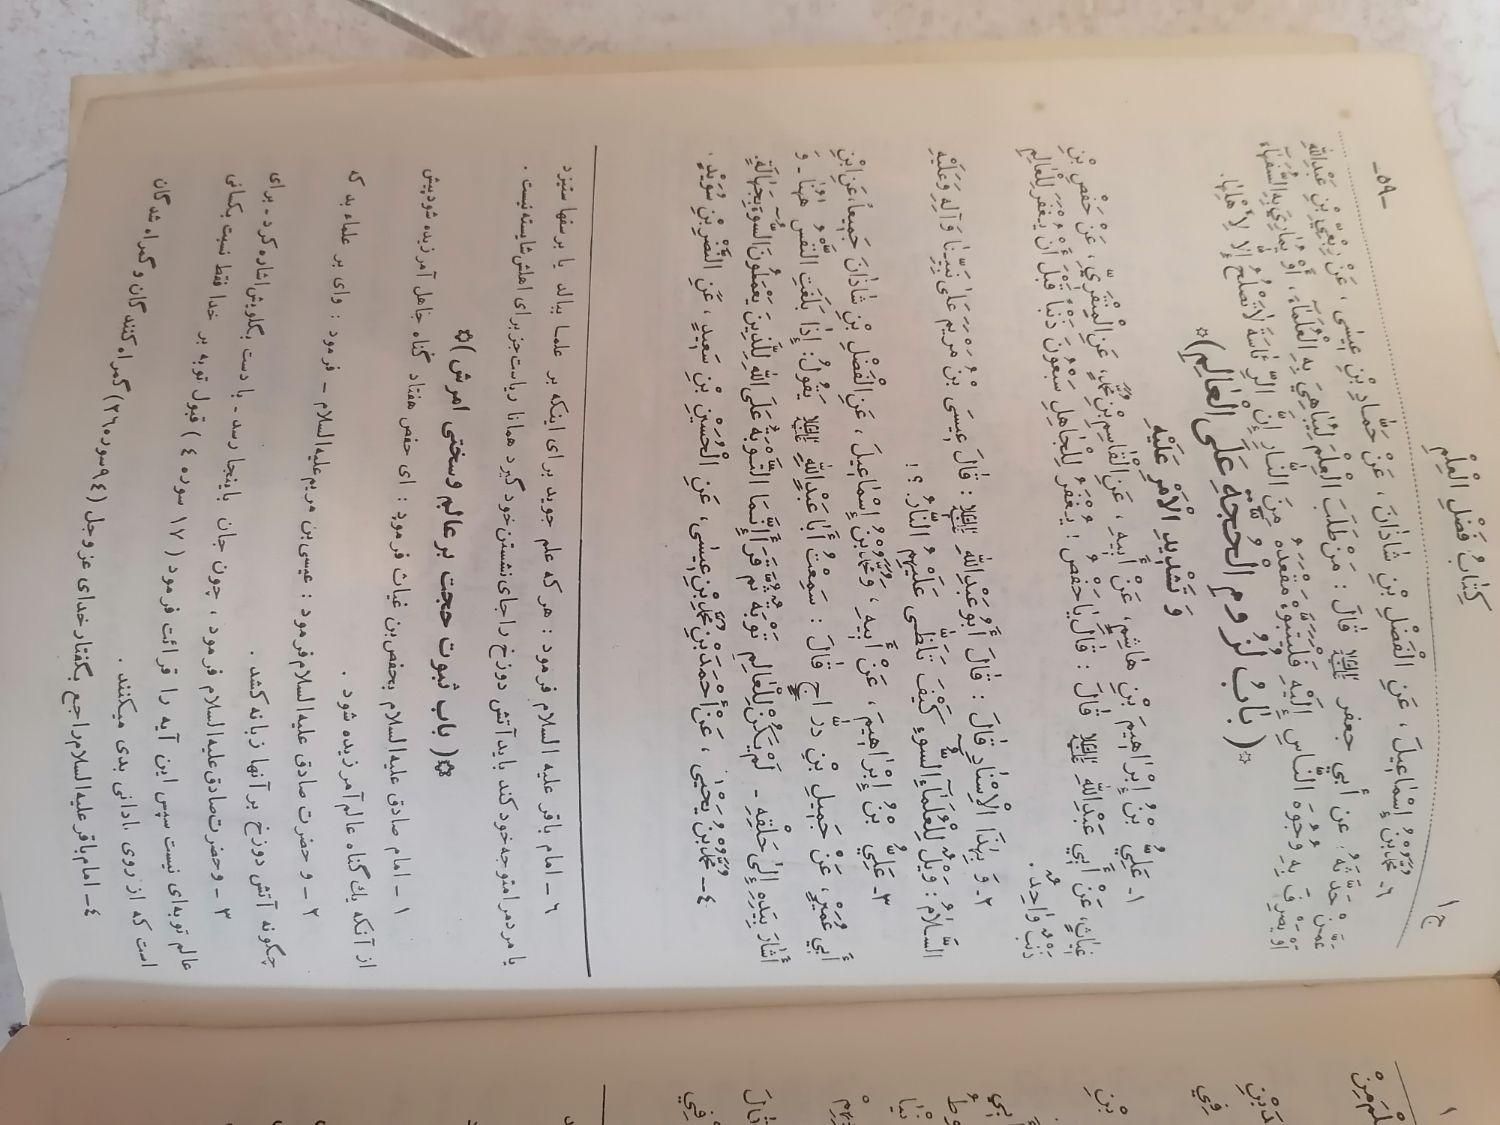 ج۱ كِتابُ فَضْلِ الْعِلْمِ -٥٩-
٦- مُحَمَّدُ بْنُ إِسْمٰاعِيلَ ، عَنِ الْفَضْلِ بْنِ شٰاذٰانَ ، عَنْ حَمّٰادِ بْنِ عِيسٰى ، عَنْ رِبْعِيِّ بْنِ عَبْدِاللهِ
عَمَّنْ حَدَّثَهُ ؛ عَنْ أَبِي جَعْفَرٍ عليه السلام قٰالَ : مَنْ طَلَبَ الْعِلْمَ لِيُبٰاهِيَ بِهِ الْعُلَمٰاءَ ، أَوْ يُمٰارِيَ بِهِ السُّفَهٰاءَ ،
أَوْ يَصْرِفَ بِهِ وُجُوهَ النّٰاسِ إِلَيْهِ فَلْيَتَبَوَّءْ مَقْعَدَهُ مِنَ النّٰارِ إِنَّ الرِّئٰاسَةَ لٰا تَصْلُحُ إِلّٰا لِأَهْلِهٰا .
☼( بٰابُ لُزُومِ الْحُجَّةِ عَلَى الْعٰالِمِ)☼
وَ تَشْدِيدِ الْأَمْرِ عَلَيْهِ
١- عَلِيُّ بْنُ إِبْرٰاهِيمَ بْنِ هٰاشِمٍ، عَنْ أَبِيهِ ، عَنِ الْقٰاسِمِ بْنِ مُحَمَّدٍ، عَنِ الْمِنْقَرِيِّ ، عَنْ حَفْصِ بْنِ
غِيٰاثٍ، عَنْ أَبِي عَبْدِاللهِ عليه السلام قٰالَ : قٰالَ يٰا حَفْصُ ! يُغْفَرُ لِلْجٰاهِلِ سَبْعُونَ ذَنْباً قَبْلَ أَنْ يُغْفَرَ لِلْعٰالِمِ
ذَنْبٌ وٰاحِدٌ .
٢- وَ بِهٰذَا الْإِسْنٰادِ قٰالَ : قٰالَ أَبُو عَبْدِاللهِ عليه السلام : قٰالَ عِيسَى بْنُ مَرْيَمَ عَلىٰ نَبِيِّنٰا وَ آلِهِ وَ عَلَيْهِ
السَّلٰامُ : وَيْلٌ لِلْعُلَمٰاءِ السُّوءِ كَيْفَ تَلَظّىٰ عَلَيْهِمُ النّٰارُ ؟!
٣- عَلِيُّ بْنُ إِبْرٰاهِيمَ ، عَنْ أَبِيهِ ، وَ مُحَمَّدُ بْنُ إِسْمٰاعِيلَ ، عَنِ الْفَضْلِ بْنِ شٰاذٰانَ جَمِيعاً، عَنِ ابْنِ
أَبِي عُمَيْرٍ ، عَنْ جَمِيلِ بْنِ دَرّٰاجٍ قٰالَ : سَمِعْتُ أَبٰا عَبْدِاللهِ عليه السلام يَقُولُ : إِذٰا بَلَغَتِ النَّفْسُ هٰهُنٰا - وَ
أَشٰارَ بِيَدِهِ إِلىٰ حَلْقِهِ - لَمْ يَكُنْ لِلْعٰالِمِ تَوْبَةٌ ثُمَّ قَرَأَ إِنَّمَا التَّوْبَةُ عَلَى اللهِ لِلَّذِينَ يَعْمَلُونَ السُّوءَ بِجَهٰالَةٍ.
٤- مُحَمَّدُ بْنُ يَحْيىٰ ، عَنْ أَحْمَدَ بْنِ مُحَمَّدِ بْنِ عِيسىٰ، عَنِ الْحُسَيْنِ بْنِ سَعِيدٍ ، عَنِ النَّضْرِ بْنِ سُوَيْدٍ ،
٦- امام باقر عليه السلام فرمود : هر كه علم جويد براى اينكه بر علما ببالد يا بر سفها ستيزد
يا مردم را متوجه خود كند بايد آتش دوزخ را جاى نشستن خود گيرد همانا رياست جز براى اهلش شايسته نيست .
☼( باب ثبوت حجت بر عالم و سختى امرش )☼
١- امام صادق عليه السلام بحفص بن غياث فرمود : اى حفص هفتاد گناه جاهل آمرزيده شود پيش
از آنكه يك گناه عالم آمرزيده شود .
٢- و حضرت صادق عليه السلام فرمود : عيسى بن مريم عليه السلام - فرمود : واى بر علماء بد كه
چگونه آتش دوزخ بر آنها زبانه كشد .
٣- و حضرت صادق عليه السلام فرمود ، چون جان باينجا رسد - با دست بگلويش اشاره كرد - براى
عالم توبه‌اى نيست سپس اين آيه را قرائت فرمود ( ١٧ سوره ٤ ) قبول توبه بر خدا فقط نسبت بكسانى
است كه از روى نادانى بدى ميكنند .
٤- امام باقر عليه السلام راجع بگفتار خداى عز و جل (٩٤ سوره ٢٦) گمراه كنندگان و گمراه شدگان